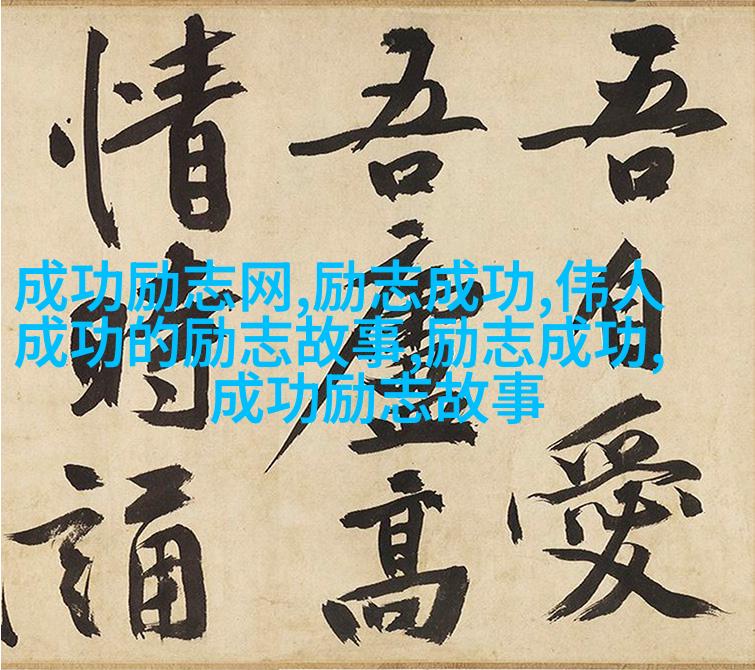 吾自愛
吾廬高
情時誦
成功励志网,励志成功,伟人
成功的励志故事,励志成功,
成功励志故事